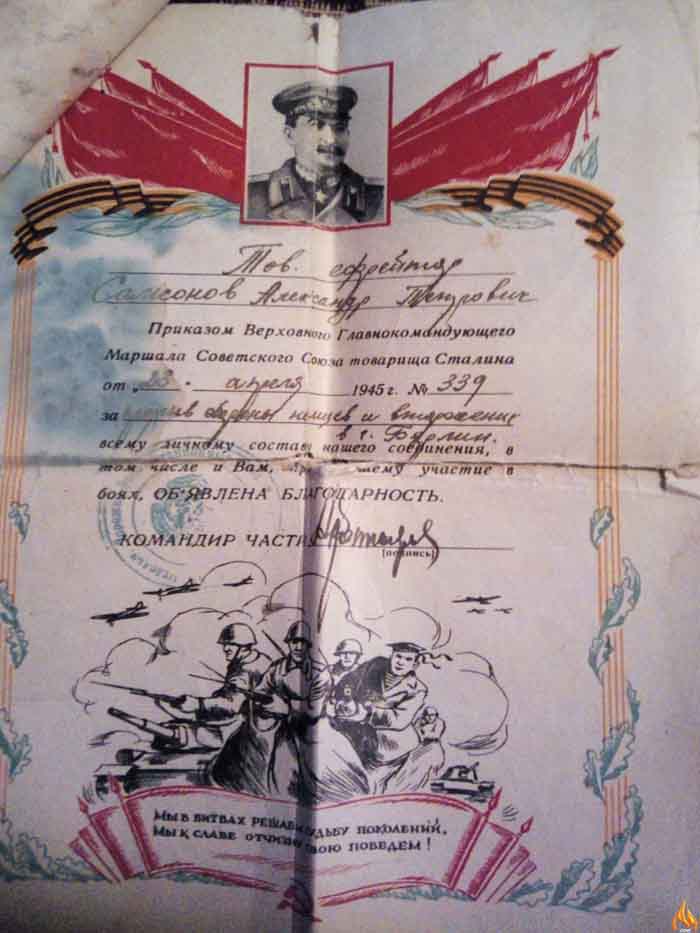 Тов. ефрейтор
Самсонов Александр Петрович
Приказом Верховного Главнокомандующего
Маршала Советского Союза товарища Сталина
от „23. апреля 1945 г. № 339
за прорыв обороны немцев и вторжение
в г. Берлин.
всему личному составу нашего соединения, в
том числе и Вам, участие в
боях, ОБ'ЯВЛЕНА БЛАГОДАРНОСТЬ.
КОМАНДИР ЧАСТИ
[подпись]
МЫ В БИТВАХ РЕШАЕМ СУДЬБУ ПОКОЛЕНИЙ,
МЫ К СЛАВЕ ОТЧИЗНУ СВОЮ ПОВЕДЕМ!